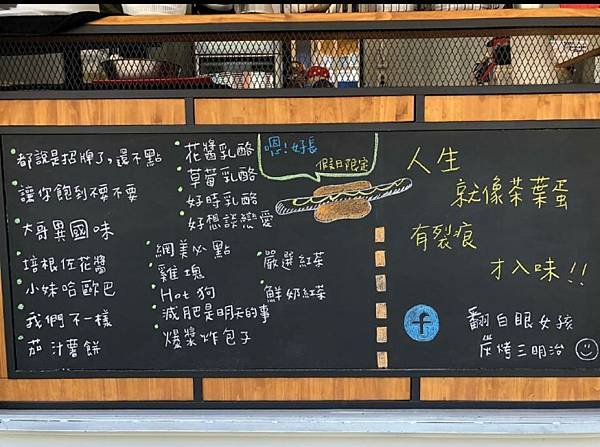 都說是招牌了,還不點
讓你飽到不要不要
大哥異國味
培根佐花醬
小妹哈歐巴
我們不一樣
茄汁薯餅
花醬乳酪
草莓乳酪
好時乳酪
好想談戀愛
網美必點
雞塊
Hot 狗
減肥是明天的事
爆漿炸包子
嚴選紅茶
鮮奶紅茶
嗯!好長
假日限定
人生
就像茶葉蛋
有裂痕
才入味!!
f
翻白眼女孩
炭烤三明治